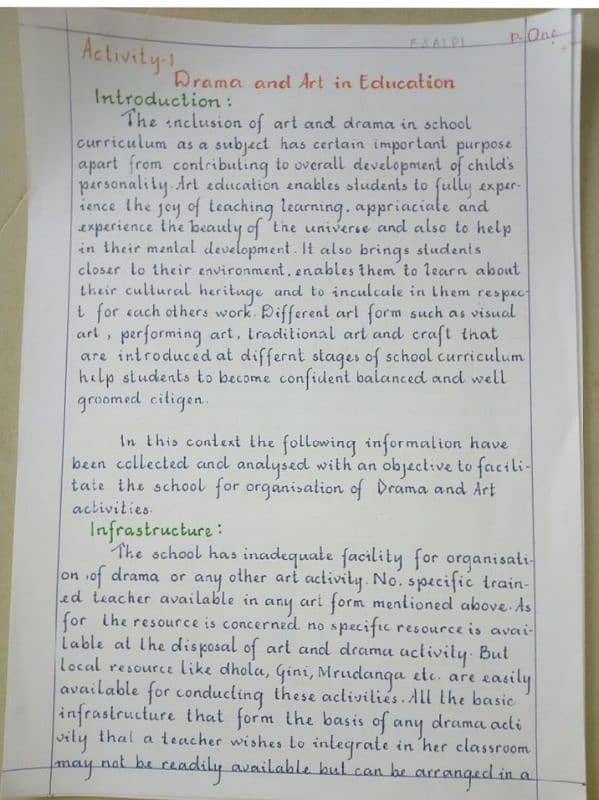 P. One
Activity-1
Drama and Art in Education
Introduction:
The inclusion of art and drama in school
curriculum as a subject has certain important purpose
apart from contributing to overall development of child's
personality. Art education enables students to fully exper-
ience the joy of teaching learning, appriaciate and
experience the beauty of the universe and also to help
in their mental development. It also brings students
closer to their environment, enables them to learn about
their cultural heritage and to inculcale in them respec
t for each others work. Different art form such as visual
art, performing art, traditional art and craft that
are introduced at differnt stages of school curriculum
help students to become confident balanced and well
groomed citigen.
In this context the following information have
been collected and analysed with an objective to facili-
tate the school for organisation of Drama and Art
activities.
Infrastructure:
The school has inadequate facility for organisati-
on of drama or any other art activity. No. specific train-
ed teacher available in any art form mentioned above. As
for the resource is concerned no specific resource is avai-
lable at the disposal of art and drama activity. But
local resource like dhola, Gini, Mrudanga etc. are easily
available for conducting these activities. All the basic
infrastructure that form the basis of any drama acti
vity that a teacher wishes to integrate in her classroom
may not be readily available but can be arranged in a